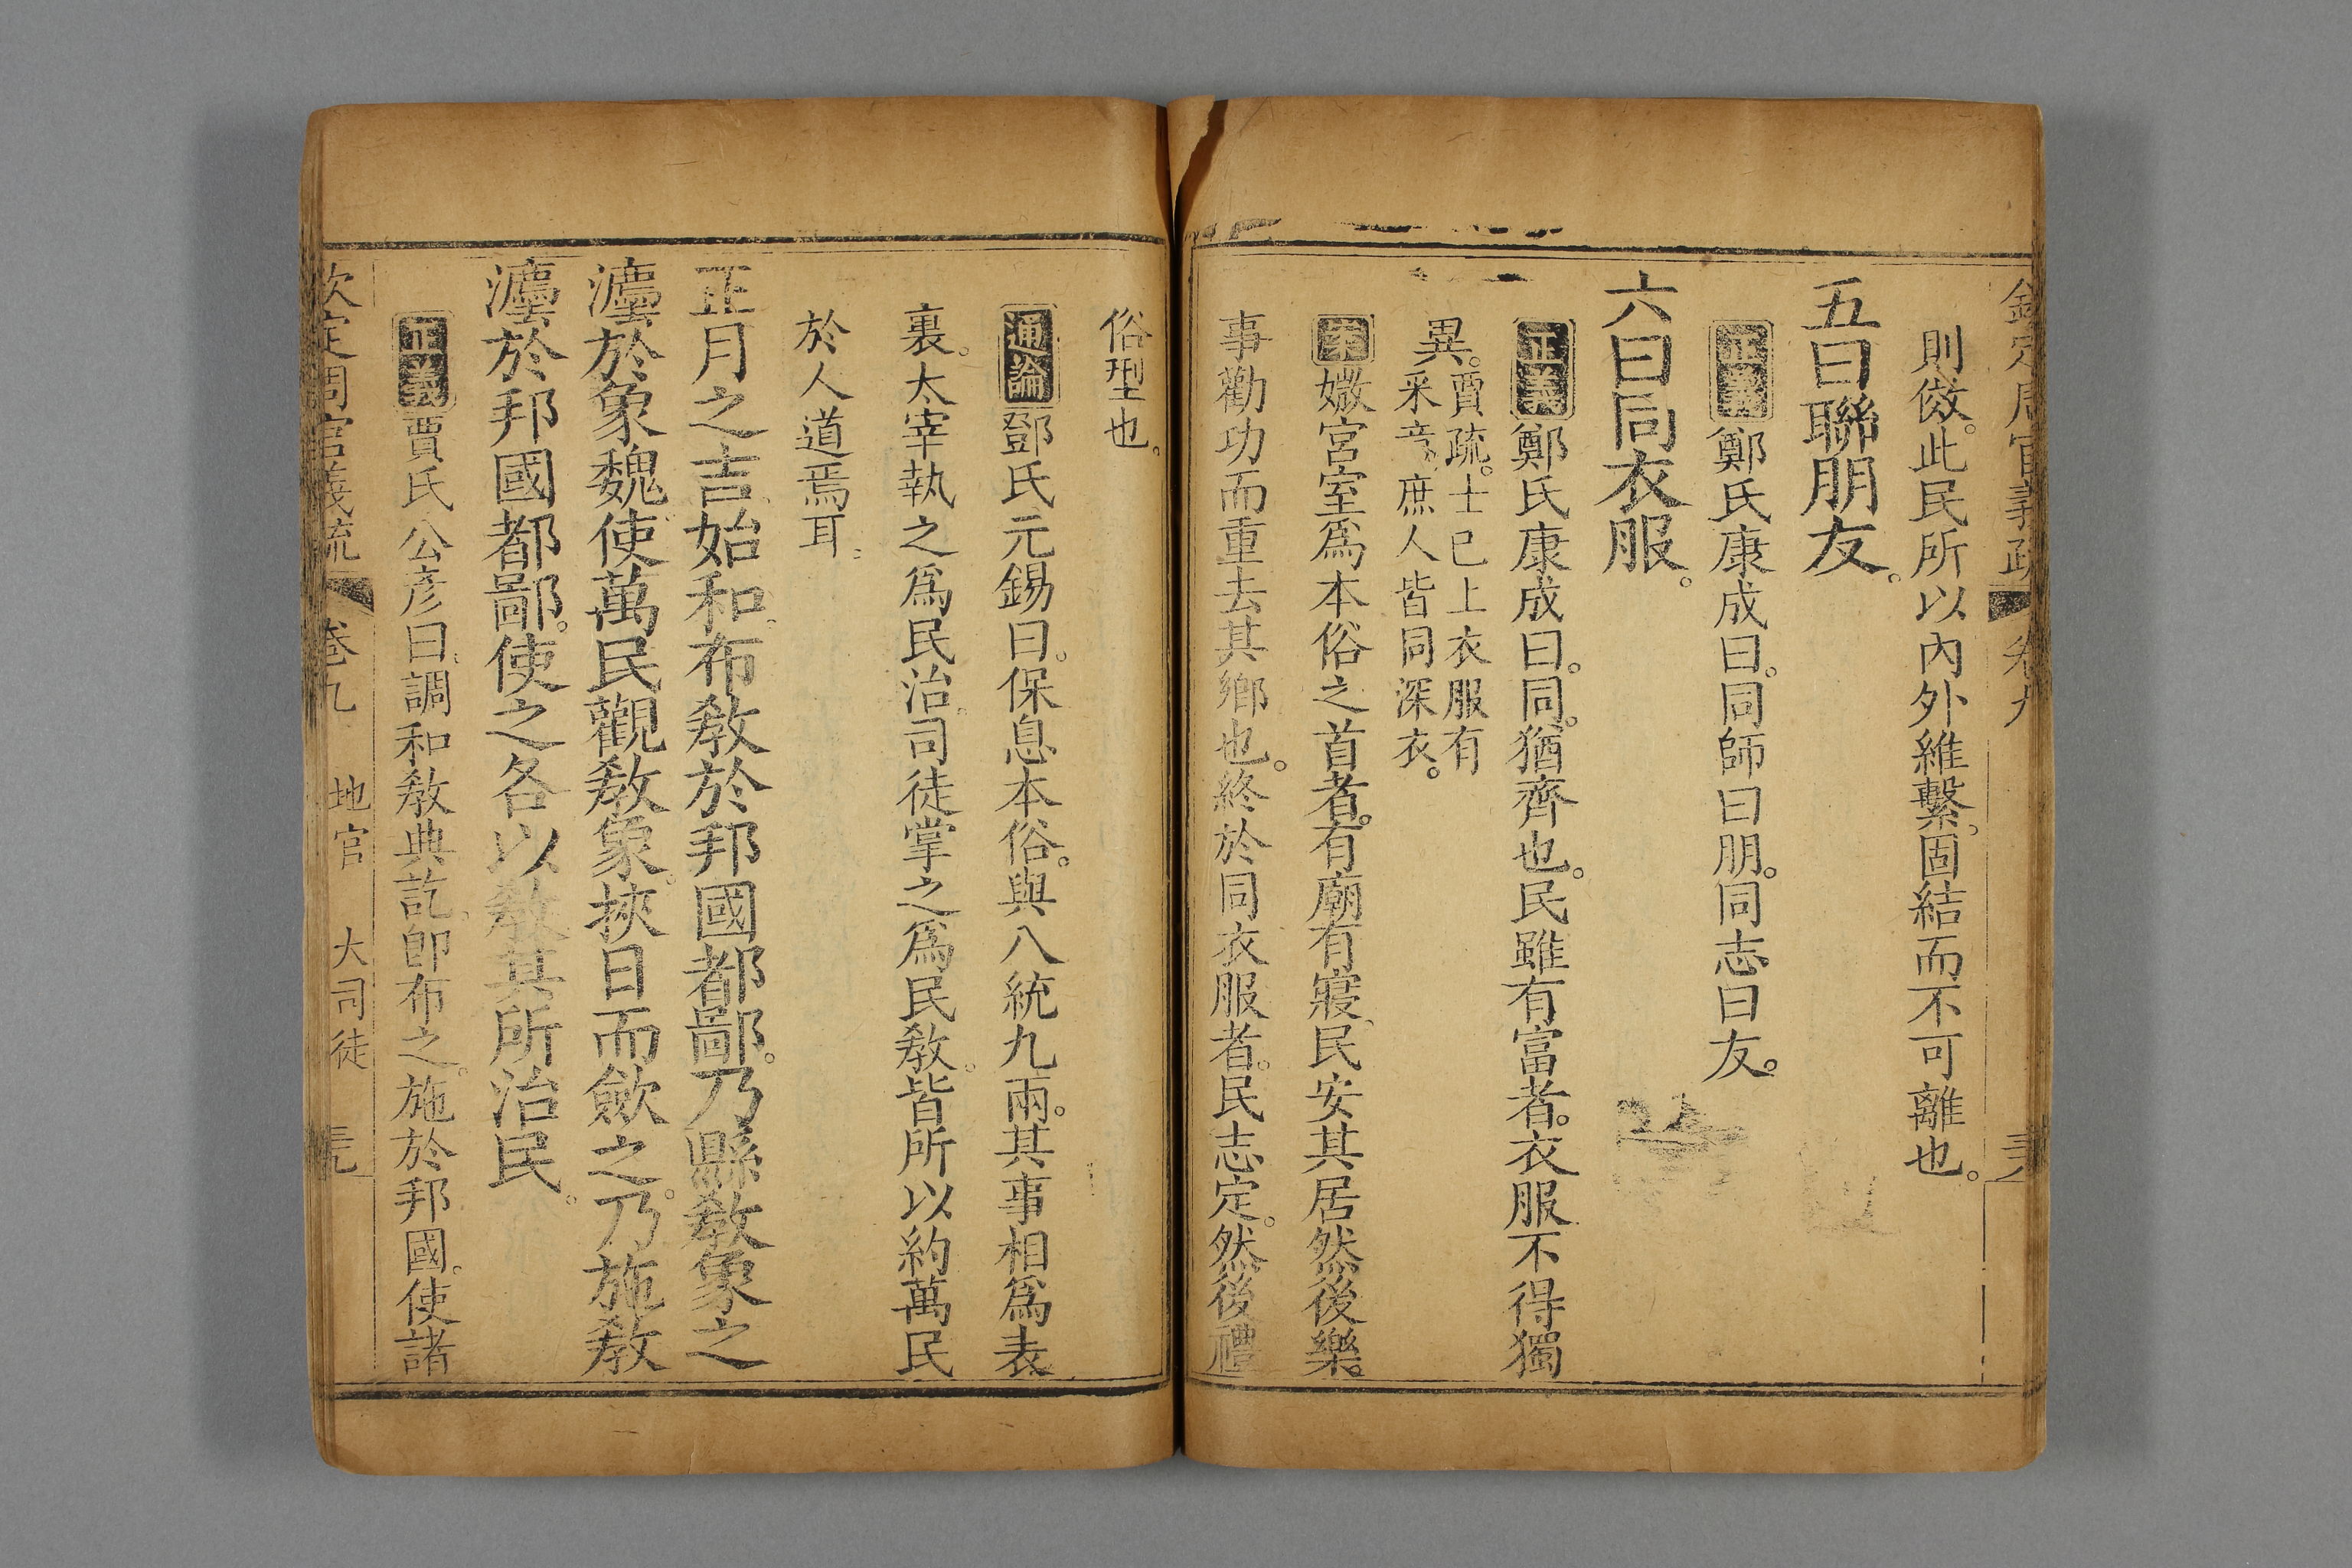 欽定周官義疏 卷九
則傚。此民所以內外維繫。固結而不可離也。
五曰聯朋友。
正義鄭氏康成曰。同師曰朋。同志曰友。
六曰同衣服。
正義鄭氏康成曰。同。猶齊也。民雖有富者。衣服不得獨
異。賈疏。士已上衣服有采章。庶人皆同深衣。
案媺宮室爲本俗之首者。有廟有寢。民安其居。然後樂。
事勸功而重去其鄉也。終於同衣服者。民志定。然後禮
俗型也。
通論鄧氏元錫曰。保息本俗。與八統九兩。其事相爲表
裏。太宰執之爲民治。司徒掌之爲民敎。皆所以約萬民
於人道焉耳。
正月之吉。始和。布敎於邦國都鄙。乃縣敎象之
灋於象魏。使萬民觀敎象。挾日而斂之。乃施敎
灋於邦國都鄙。使之各以敎其所治民。
正義賈氏公彥曰。調和敎典訖。卽布之。施於邦國。使諸
欽定周官義疏 卷九 地官 大司徒